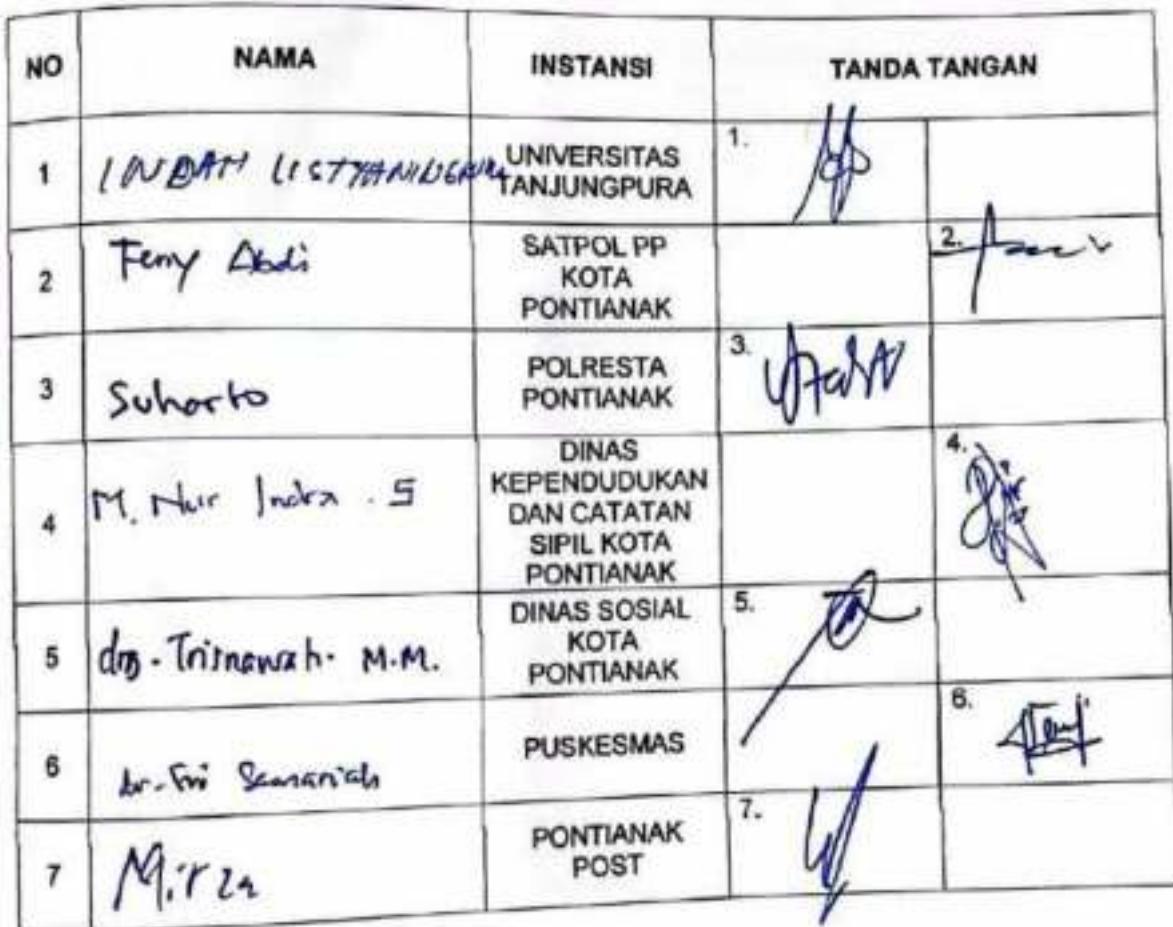 NO NAMA INSTANSI TANDA TANGAN
1 INDAH LISTYANINGRUM UNIVERSITAS
TANJUNGPURA 1.
2 Ferry Abdi SATPOL PP
KOTA
PONTIANAK 2.
3 Suharto POLRESTA
PONTIANAK 3.
4 M. Nur Indra . S DINAS
KEPENDUDUKAN
DAN CATATAN
SIPIL KOTA
PONTIANAK 4.
5 drg. Trisnawati. M.M. DINAS SOSIAL
KOTA
PONTIANAK 5.
6 dr. Tri PUSKESMAS 6.
7 Mirza PONTIANAK
POST 7.